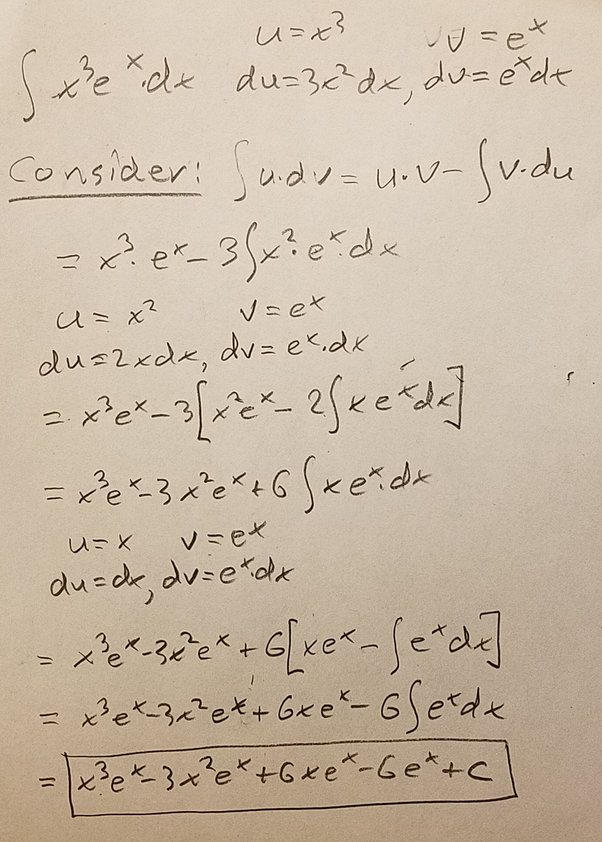 u=x³ v=eˣ
∫x³eˣ·dx du=3x²dx, dv=eˣdx
Consider: ∫u·dv=u·v-∫v·du
=x³·eˣ-3∫x²·eˣ·dx
u=x² v=eˣ
du=2xdx, dv=eˣ·dx
=x³eˣ-3[x²eˣ-2∫xeˣdx]
=x³eˣ-3x²eˣ+6∫xeˣ·dx
u=x v=eˣ
du=dx, dv=eˣ·dx
=x³eˣ-3x²eˣ+6[xeˣ-∫eˣdx]
=x³eˣ-3x²eˣ+6xeˣ-6∫eˣdx
=x³eˣ-3x²eˣ+6xeˣ-6eˣ+C